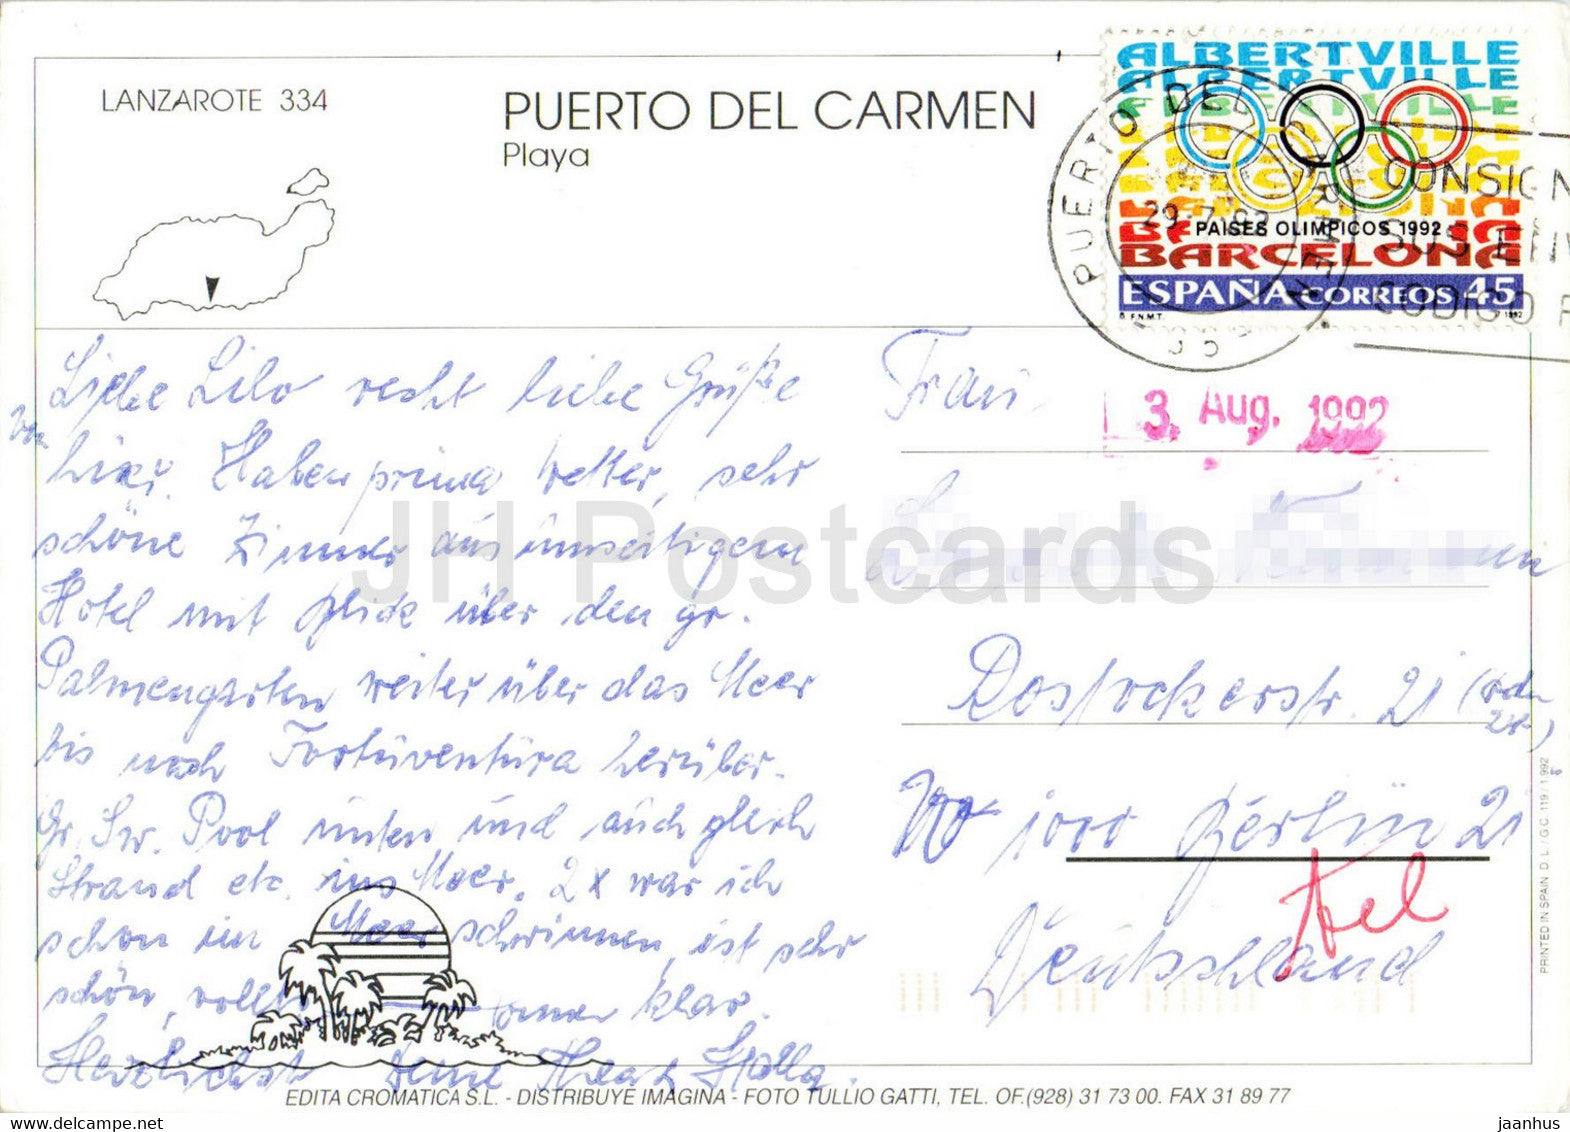 LANZAROTE 334
PUERTO DEL CARMEN
Playa
ALBERTVILLE
ALBERTVILLE
PAISES OLIMPICOS 1992
BARCELONA
ESPAÑA CORREOS 45
F.N.M.T. 1992
PUERTO DEL CARMEN
29-7-92
CONSIGN
SUS EN
CODIGO P
3. Aug. 1992
Liebe Lilo recht liebe Grüße
von hier. Haben prima Wetter, sehr
schöne Zimmer aus
Hotel mit Blick über den gr.
Palmengarten weiter über das Meer
bis nach Fortüventüra herüber.
Gr. Sw. Pool unten und auch gleich
Strand etc. ins Meer. 2x war ich
schon im Meer schwimmen, ist sehr
schön, klar.
Herzlichst Deine
Frau
Rostockerstr. 21
1000 Berlin 21
Deutschland
JH Postcards
EDITA CROMATICA S.L. - DISTRIBUYE IMAGINA - FOTO TULLIO GATTI, TEL. OF.(928) 31 73 00. FAX 31 89 77
PRINTED IN SPAIN D. L. / G.C. 119 / 1.992
jaanhus